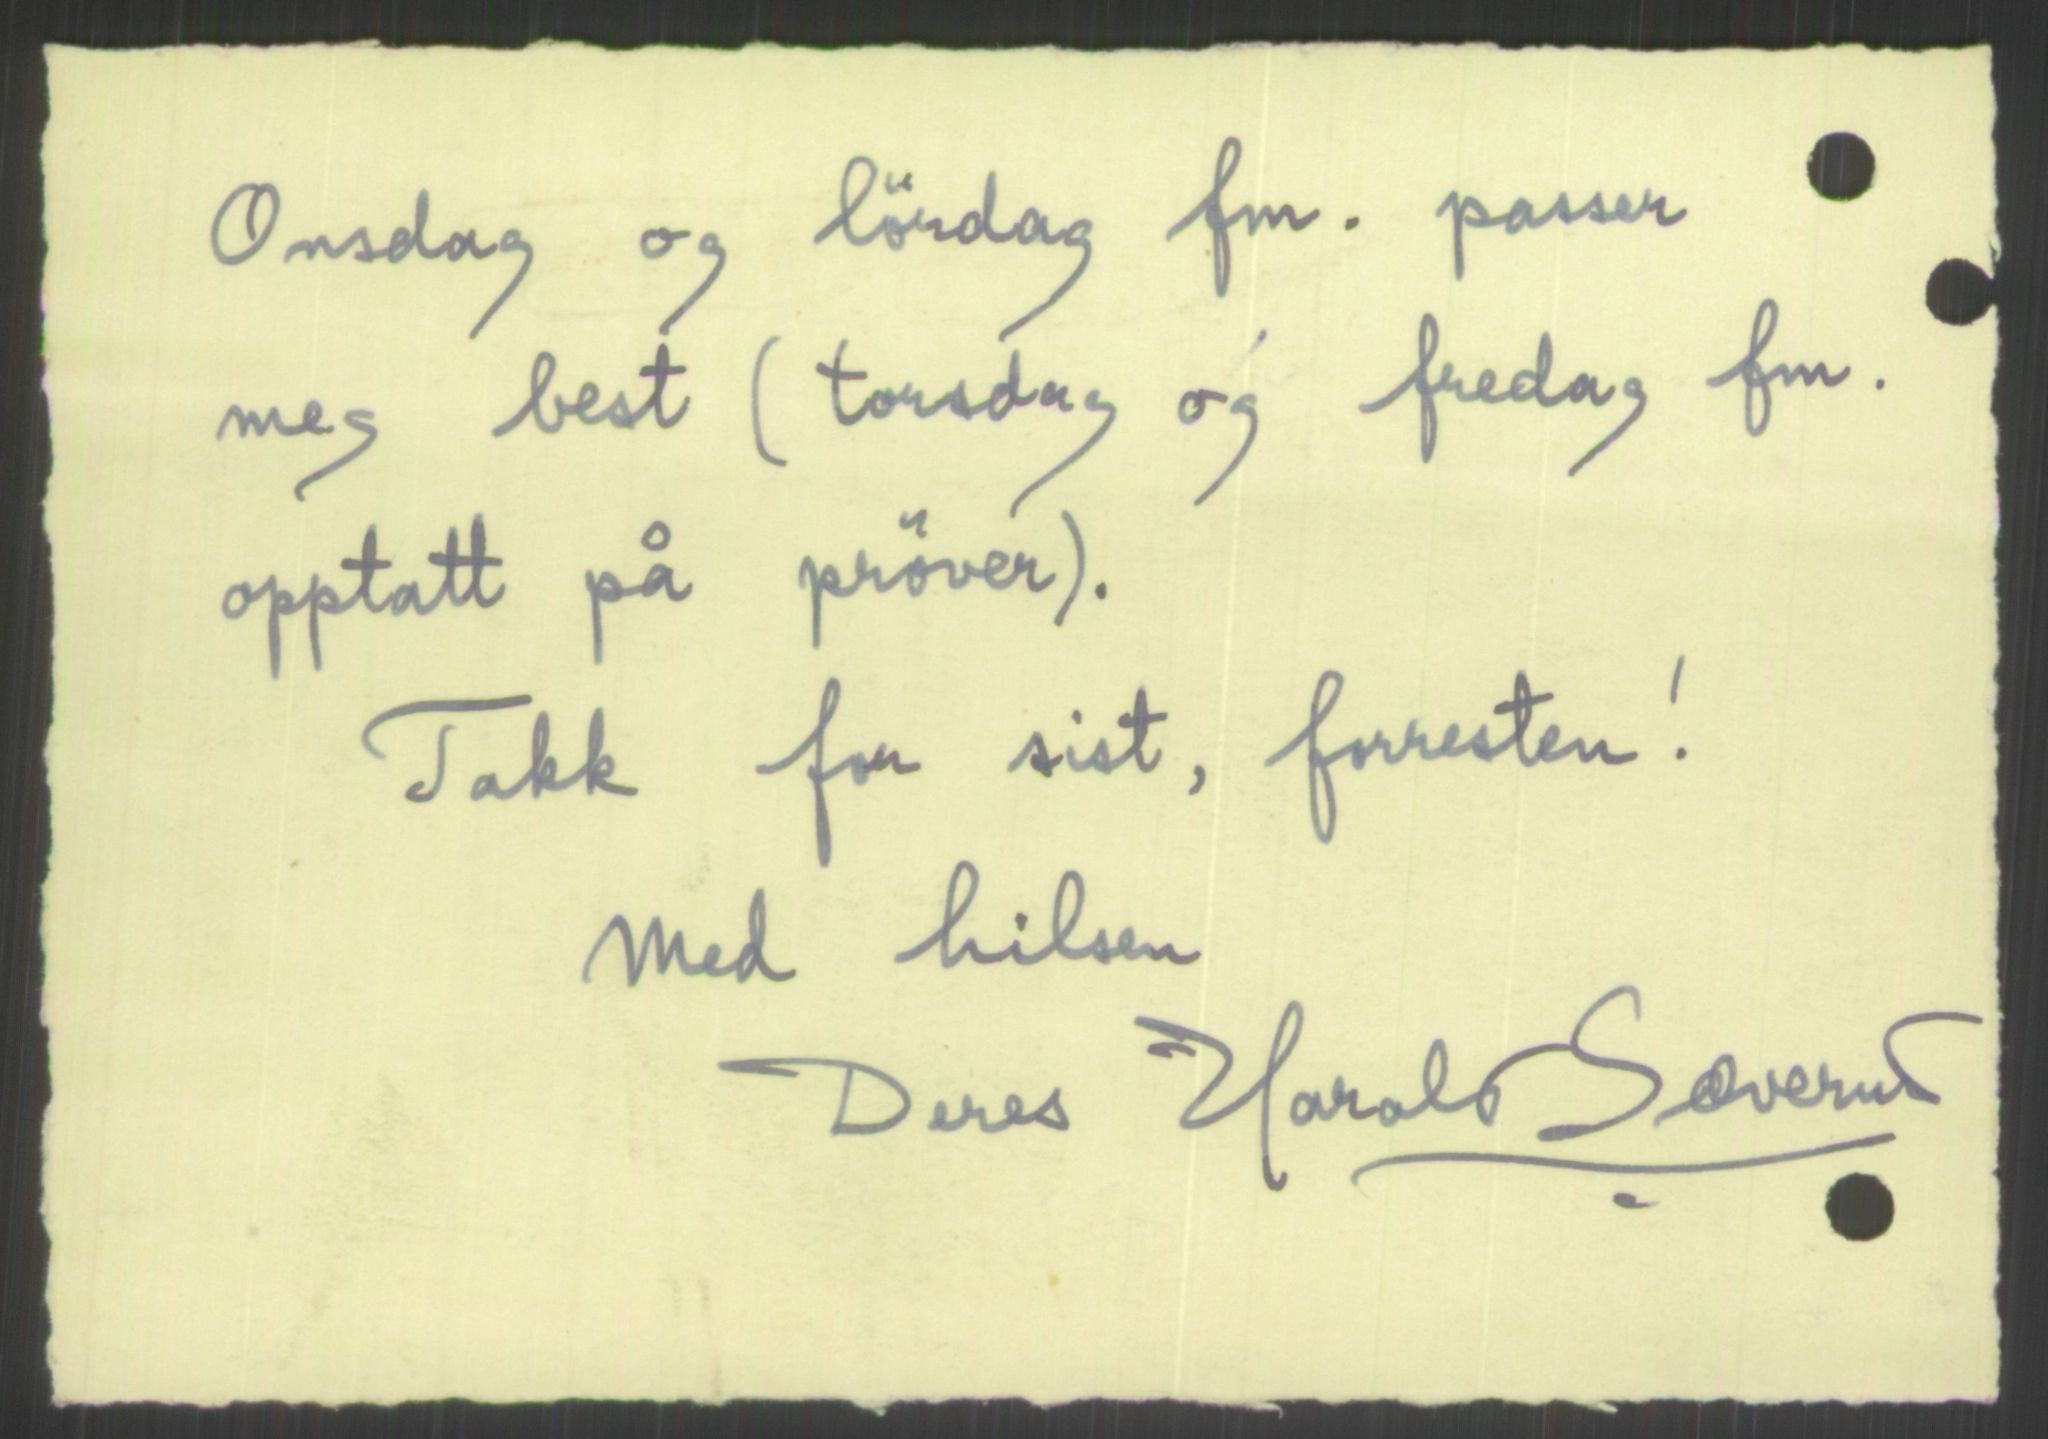 Onsdag og lördag fm. passer
meg best (torsdag og fredag fm.
opptatt på pröver).
Takk for sist, forresten!
Med hilsen
Deres Harald Sæverud